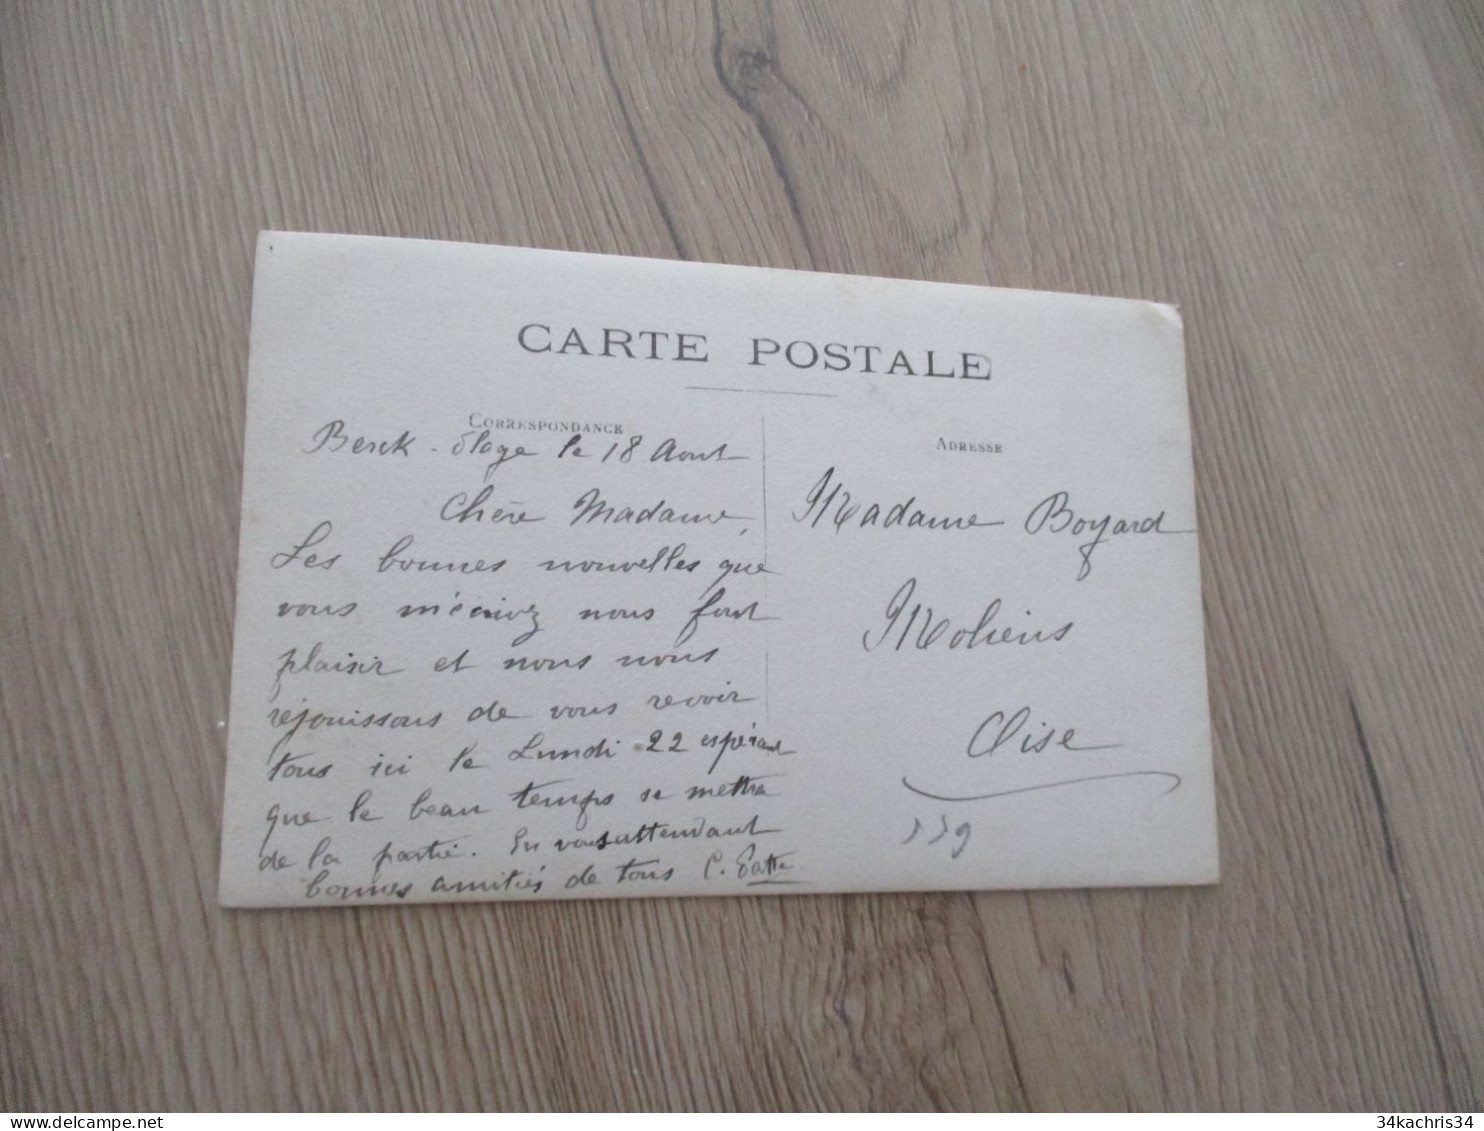 CARTE POSTALE
CORRESPONDANCE
Berck-Plage le 18 Aout
Chère Madame,
Les bonnes nouvelles que
vous m'écrivez nous font
plaisir et nous nous
réjouissons de vous revoir
tous ici le Lundi 22 espérant
que le beau temps se mettra
de la partie. En vous attendant
bonnes amitiés de tous C.
ADRESSE
Madame Boyard
Moliens
Oise
34kachris34